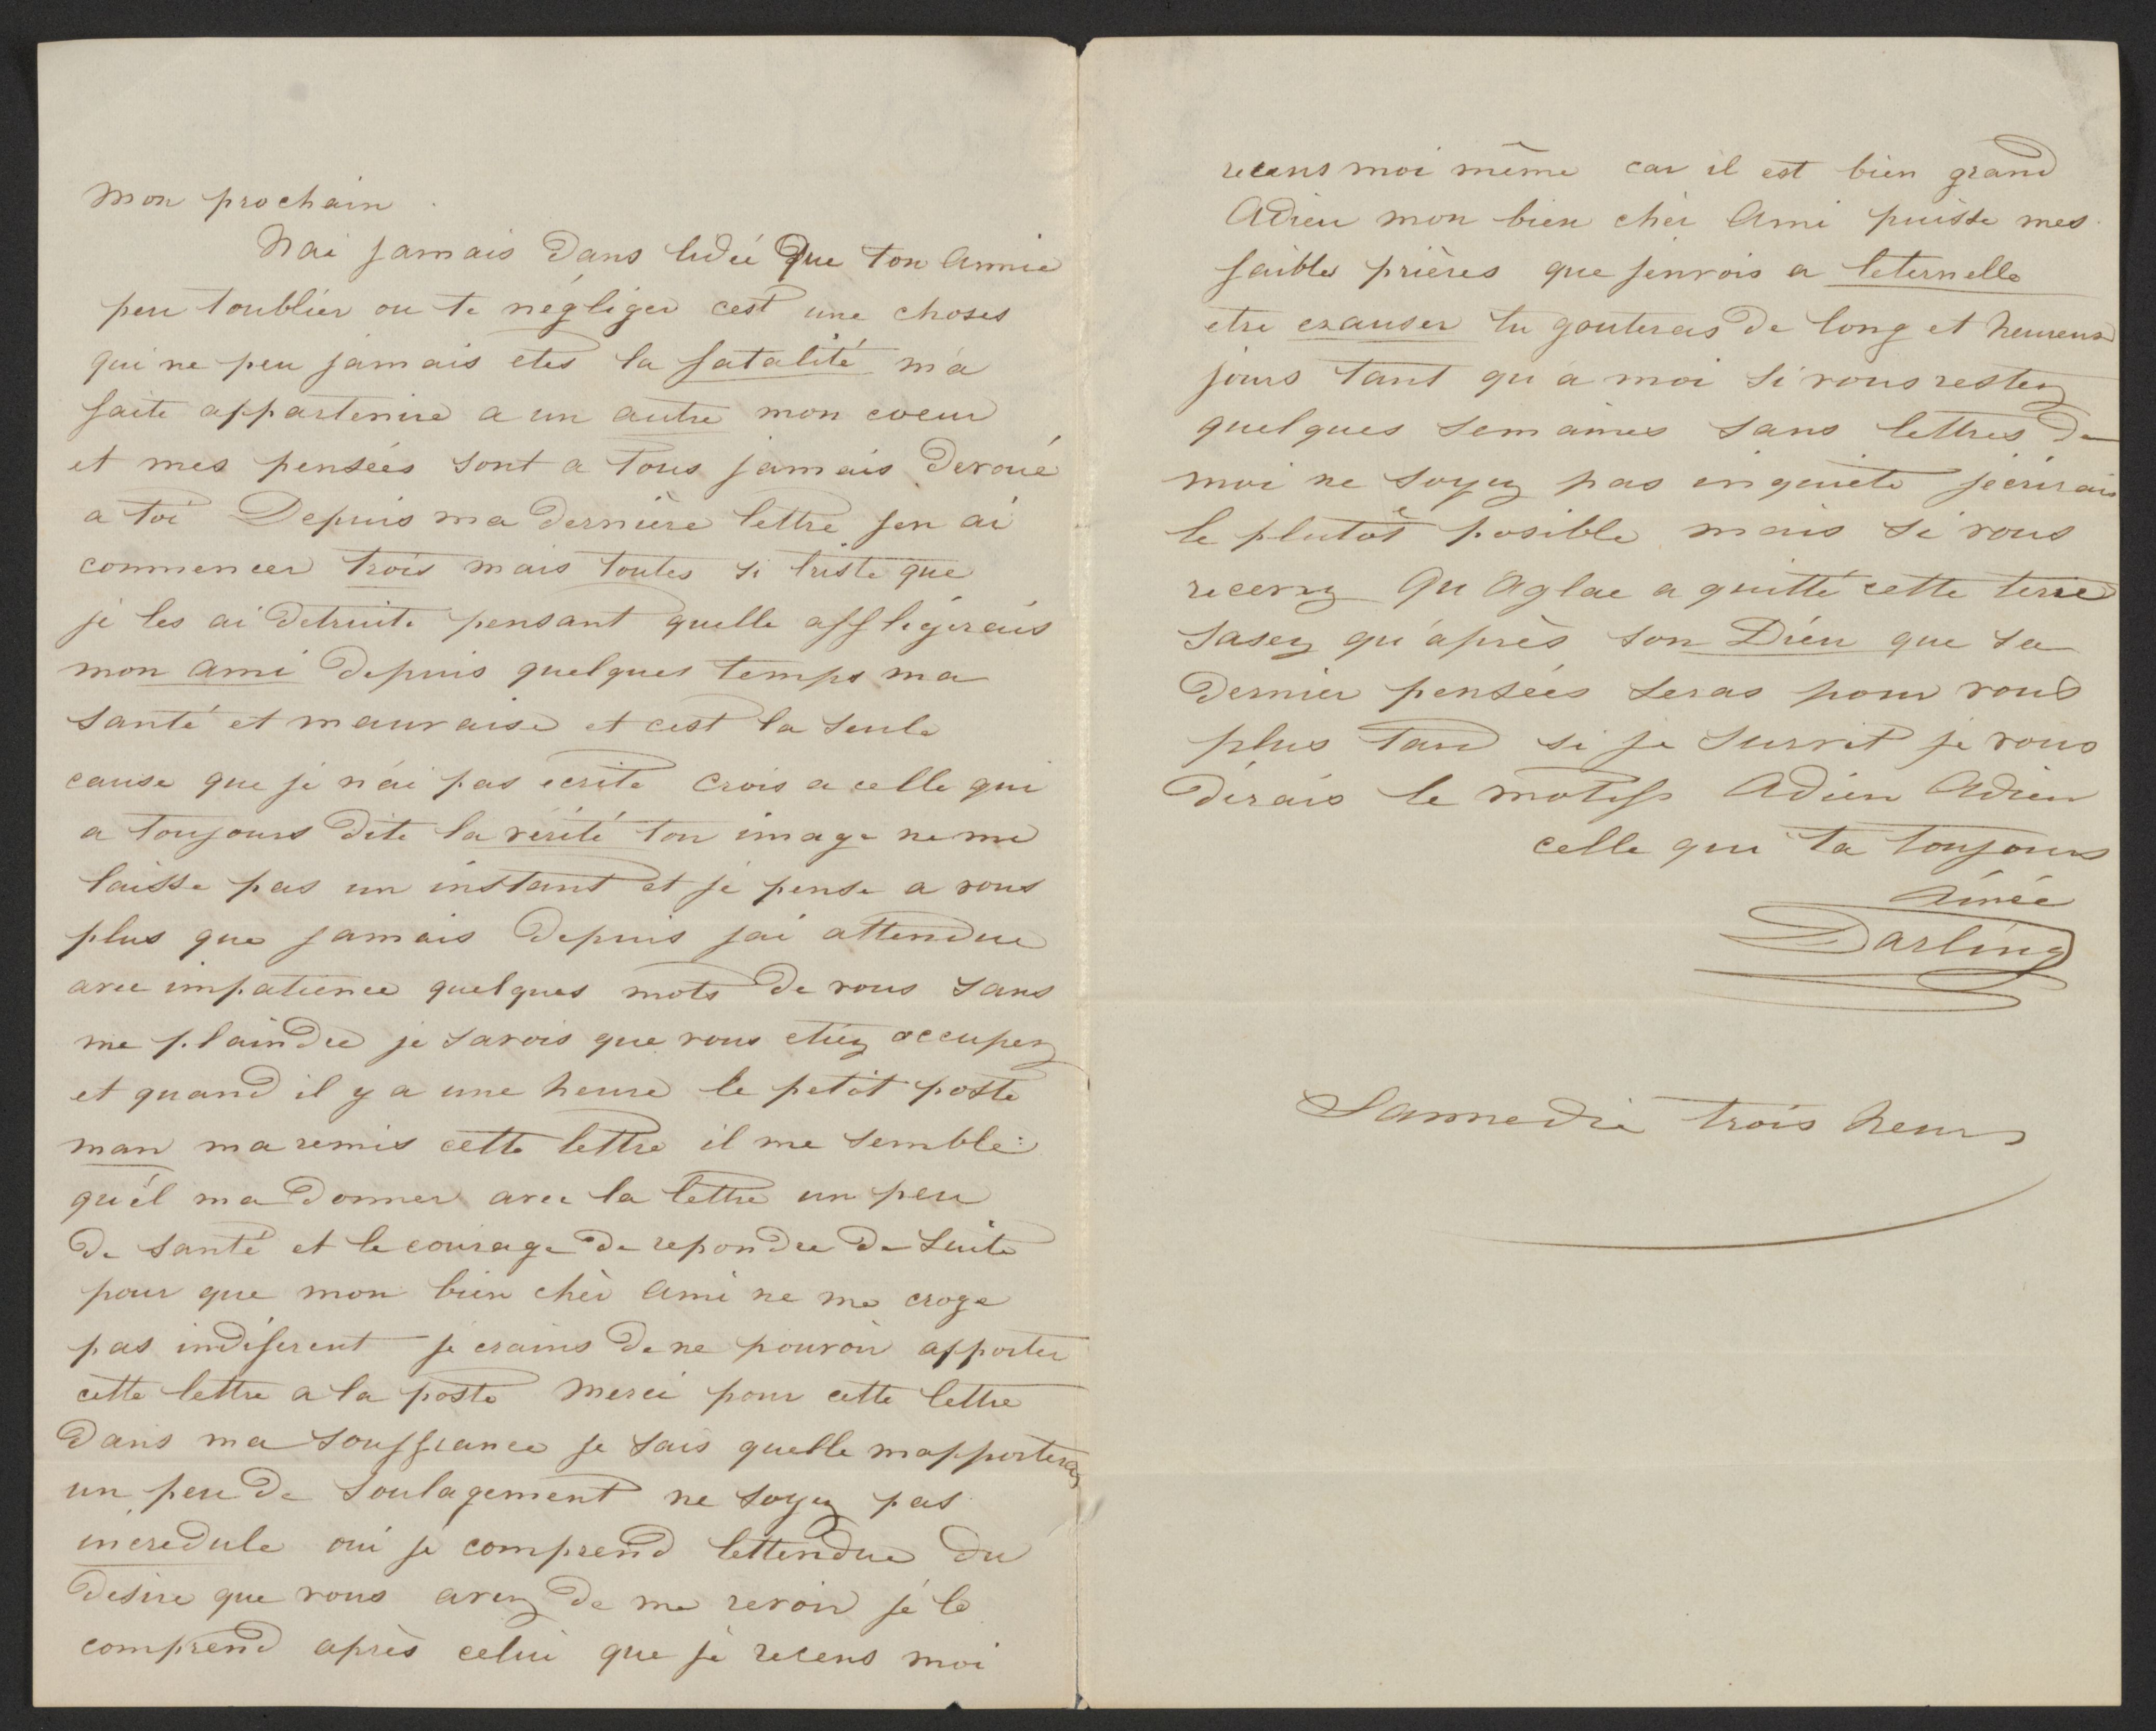 Mon prochain
Nai jamais dans lideé que ton Amie
peu toublier ou te négliger cest une choses
qui ne peu jamais etes la fatalité m'a
faite appartenire a un autre mon coeur
et mes penseés sont a tous jamais devoué
a toi Depuis ma dernière lettre jen ai
commencer trois mais toutes si triste que
je les ai detruite pensant quelle affligérais
mon ami depuis quelques temps ma
santé et mauvaise et cest la seule
cause que je n'ai pas ecrite crois a celle qui
a toujours dite la vérité ton image ne me
laisse pas un instant et je pense a vous
plus que jamais depuis jai attendue
avec impatience quelques mots de vous sans
me plaindre je savois que vous etiez occuper
et quand il y a une heure le petit poste
man ma remis cette lettre il me semble
qu'il ma donner avec la lettre un peu
de santé et le courage de repondre de suite
pour que mon bien chèr ami ne me croye
pas indiferent je crains de ne pouvoir apporter
cette lettre a la poste Merci pour cette lettre
Dans ma souffrance je sais quelle mapporteras
un peu de soulagement ne soyez pas
incredule oui je comprend lettendue du
desire que vous avez de me revoir jé le
comprend après celui que je recens moi
recens moi même car il est bien grand
Adieu mon bien chèr Ami puisse mes
faibles prières que jenvois a leternelle
etre exauser tu gouteras de long et heureux
jours tant qu'a moi si vous restez
quelques semaines sans lettres de
moi ne soyez pas inquiete jecrirais
le plutôt posible mais si vous
recevez Qu Aglae a quitté cette terre
sasez qu'après son Dieu que sa
dernier penseés seras pour vous
plus tard si je survit je vous
dirais le motifs Adieu Adieu
celle qui ta toujours
Aimée
Darling
Samedie trois heurs